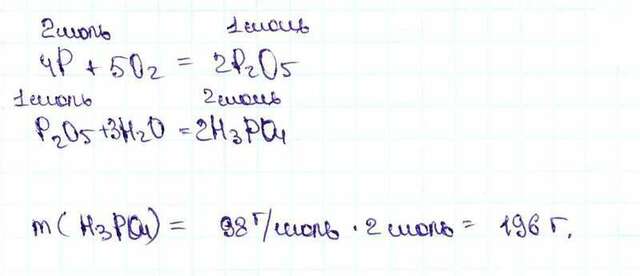 2моль 1моль
4P + 5O2 = 2P2O5
1моль 2моль
P2O5+3H2O =2H3PO4
m(H3PO4) = 98 г/моль · 2 моль = 196 г.